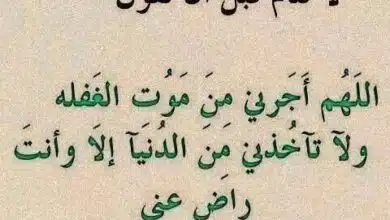 اللَهُم أَجَرنِي مِنَ مَوُت الغَفله
ولآ تآخُذنِي مَنَ الدُنيَآ إلَا وأنتَ
راضِ عني